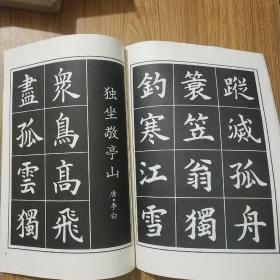 蹤滅孤舟
蓑笠翁獨
釣寒江雪
独坐敬亭山
唐·李白
衆鳥髙飛
盡孤雲獨